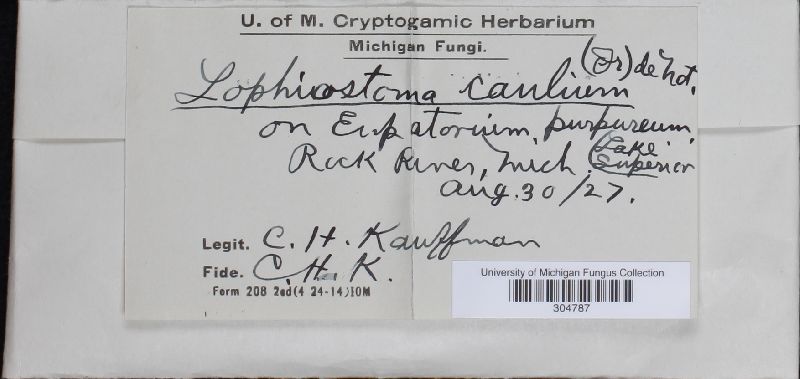 U. of M. Cryptogamic Herbarium
Michigan Fungi.
Lophiostoma caulium (Fr) de Not.
on Eupatorium purpureum,
Rock River, Mich. (Lake Superior
Aug. 30/27.
Legit. C. H. Kauffman
Fide. C. H. K.
Form 208 2ed(4 24-14)10M
University of Michigan Fungus Collection
304787